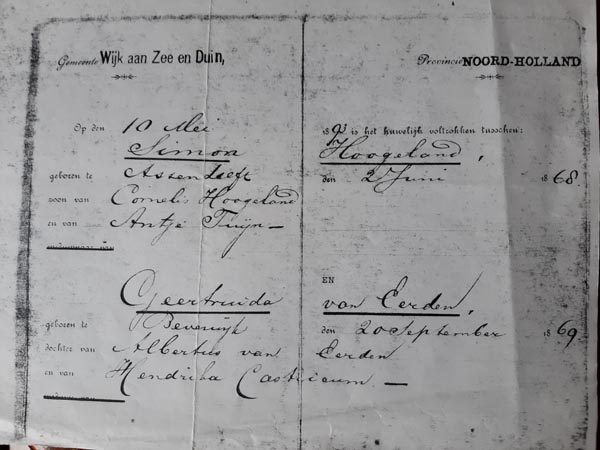 Gemeente Wijk aan Zee en Duin, Provincie NOORD-HOLLAND
Op den 10 Mei 189 is het huwelijk voltrokken tusschen:
Simon Hoogeland,
geboren te Assendelft den 2 Juni 1868.
zoon van Cornelis Hoogeland
en van Antje Tuijn —
EN
Geertruida van Eerden,
geboren te Beverwijk den 20 September 1869.
dochter van Albertus van Eerden
en van Hendrika Castricum —